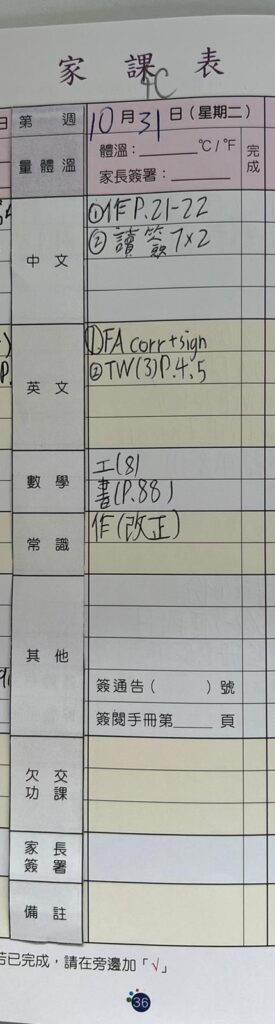 家課表
4C
日 第 週 10月31日(星期二)
量體溫 體溫：________ °C/°F 完成
家長簽署：________
中文 ①作P.21-22
②讀簽7×2
英文 ①FA corr+sign
②TW(3)P.4,5
數學 工(8)
書(P.88)
常識 作(改正)
其他
簽通告( )號
簽閱手冊第____頁
欠交功課
家長簽署
備註
若已完成，請在旁邊加「√」
36